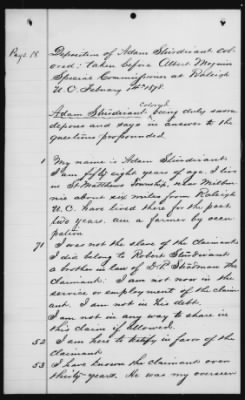 Page 18
Deposition of Adam Studivant col
ored: taken before Albert Magnin
Special Commissioner at Raleigh
N.C. February 7th 1878.
colored
Adam Studivant being duly sworn
deposes and says in answer to the
questions propounded
1 My name is Adam Studivant
I am fifty eight years of age. I live
in St Matthews Township, near Milbur
nie about six miles from Raleigh
N.C. have lived there for the past
five years. am a farmer by occu
pation
71 I was not the slave of the claimant
I did belong to Robert Studivant
a brother in law of D. P. Steadman the
claimant: I am not now in the
service or employment of the claim
ant. I am not in his debt.
I am not in any way to share in
this claim if allowed.
52 I am here to testify in favor of the
claimant
53 I have known the claimant over
thirty years. He was my overseer